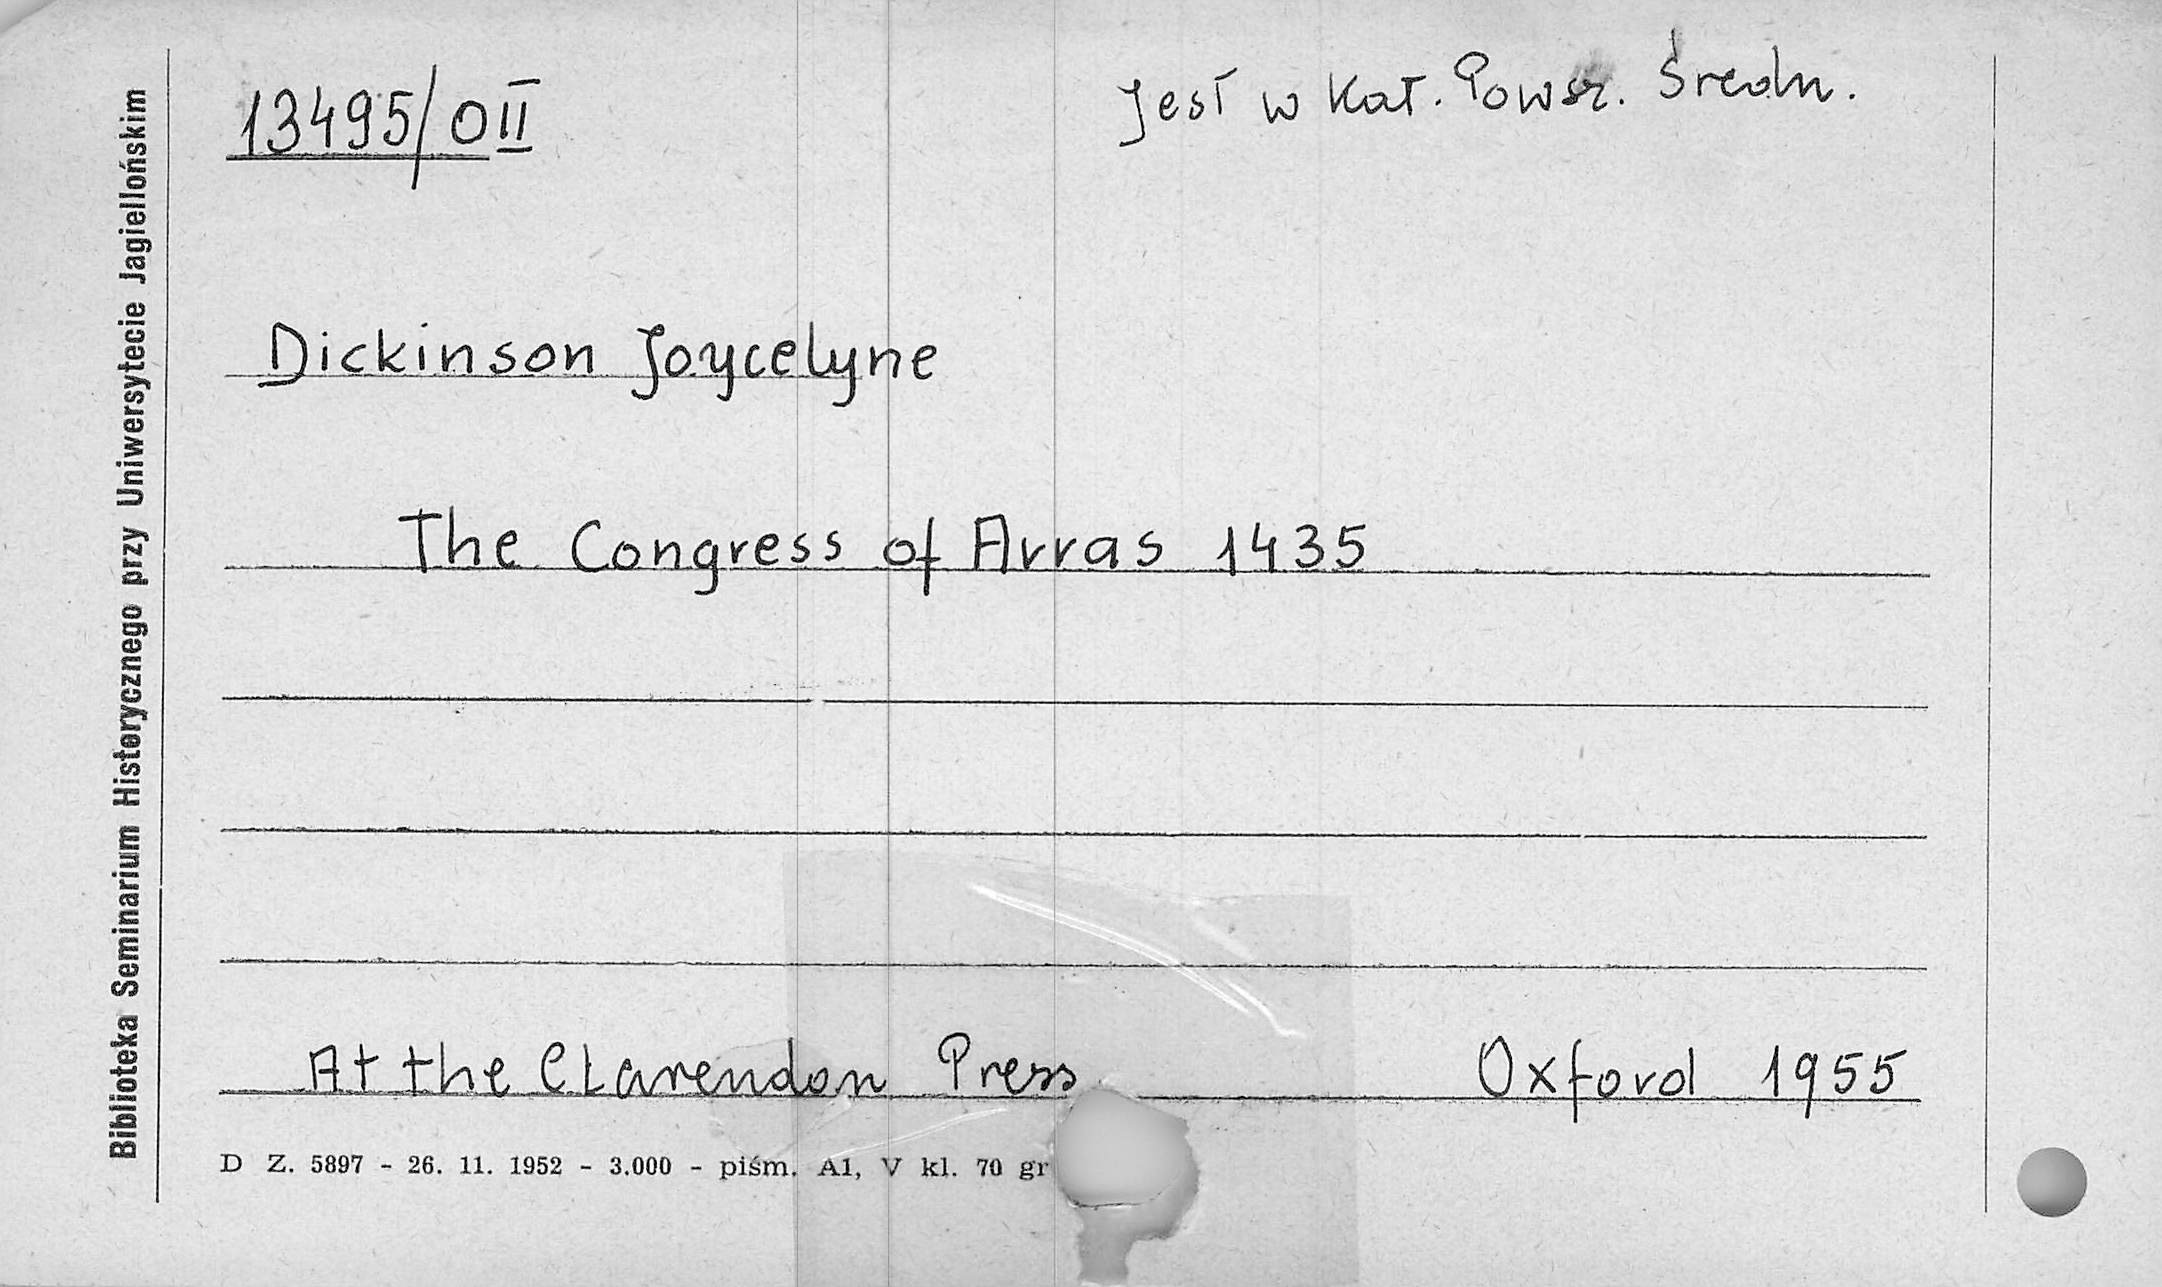 13495/OII
Jest w Kat. Powsz. Średn.
Dickinson Joycelyne
The Congress of Arras 1435
At the Clarendon Press Oxford 1955
D Z. 5897 - 26. 11. 1952 - 3.000 - piśm. A1, V kl. 70 gr
Biblioteka Seminarium Historycznego przy Uniwersytecie Jagiellońskim